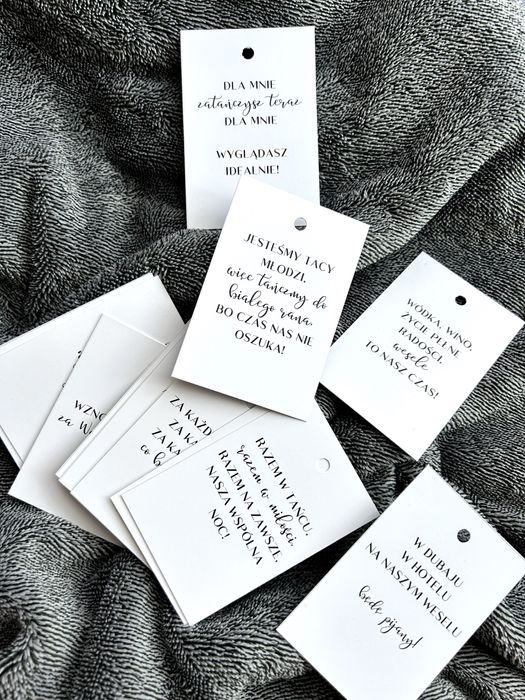 DLA MNIE
zatańczysz teraz
DLA MNIE
WYGLĄDASZ
IDEALNIE!
JESTEŚMY TACY
MŁODZI,
więc tańczmy do
białego rana,
BO CZAS NAS NIE
OSZUKA!
WÓDKA, WINO,
ŻYCIE PEŁNE
RADOŚCI,
wesele
TO NASZ CZAS!
WZNO
za W
ZA KAŻD
ZA K
ZA KA
co b
RAZEM W TAŃCU,
razem w miłości,
RAZEM NA ZAWSZE,
NASZA WSPÓLNA
NOC!
W DUBAJU
W HOTELU
NA NASZYM WESELU
będę pijany!